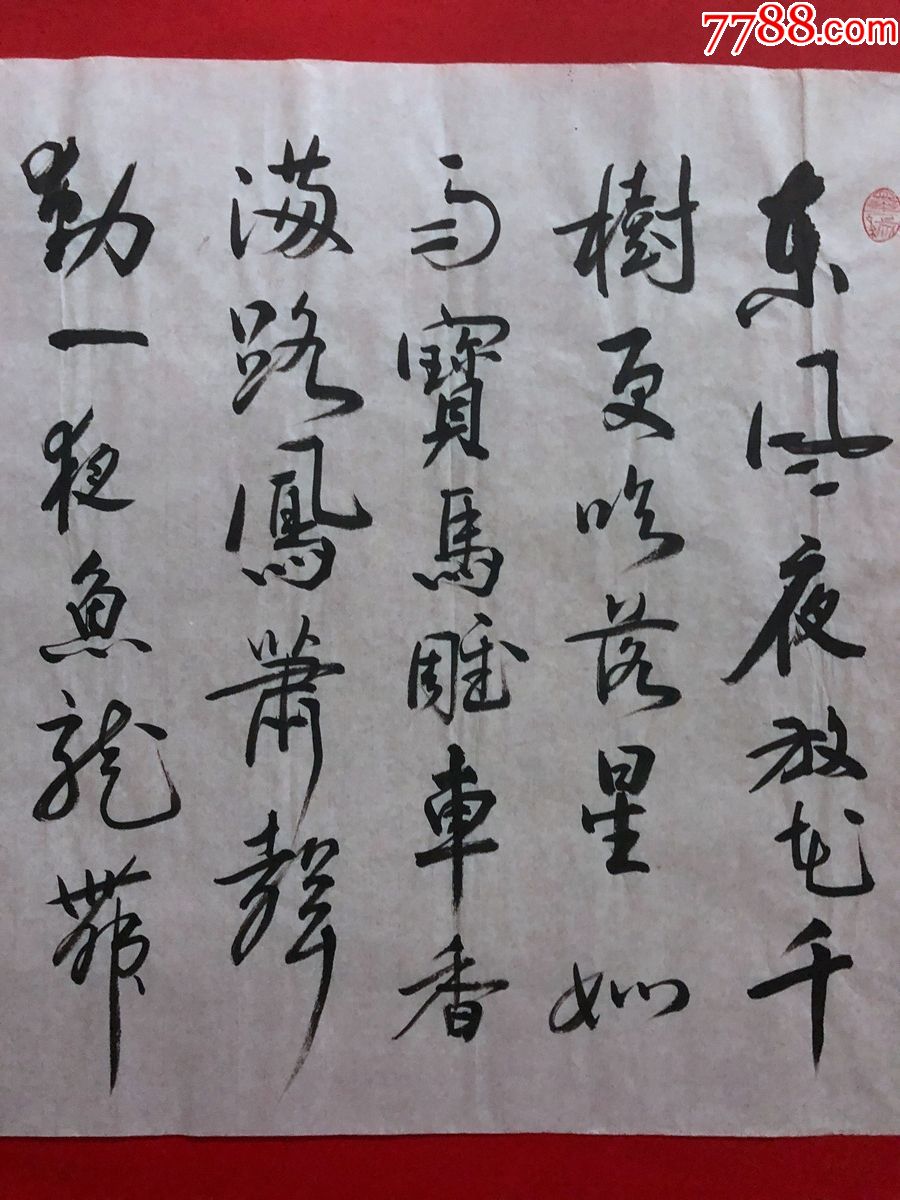 7788.com
東風夜放花千
樹更吹落星如
雨寶馬雕車香
滿路鳳簫聲
動一夜魚龍舞